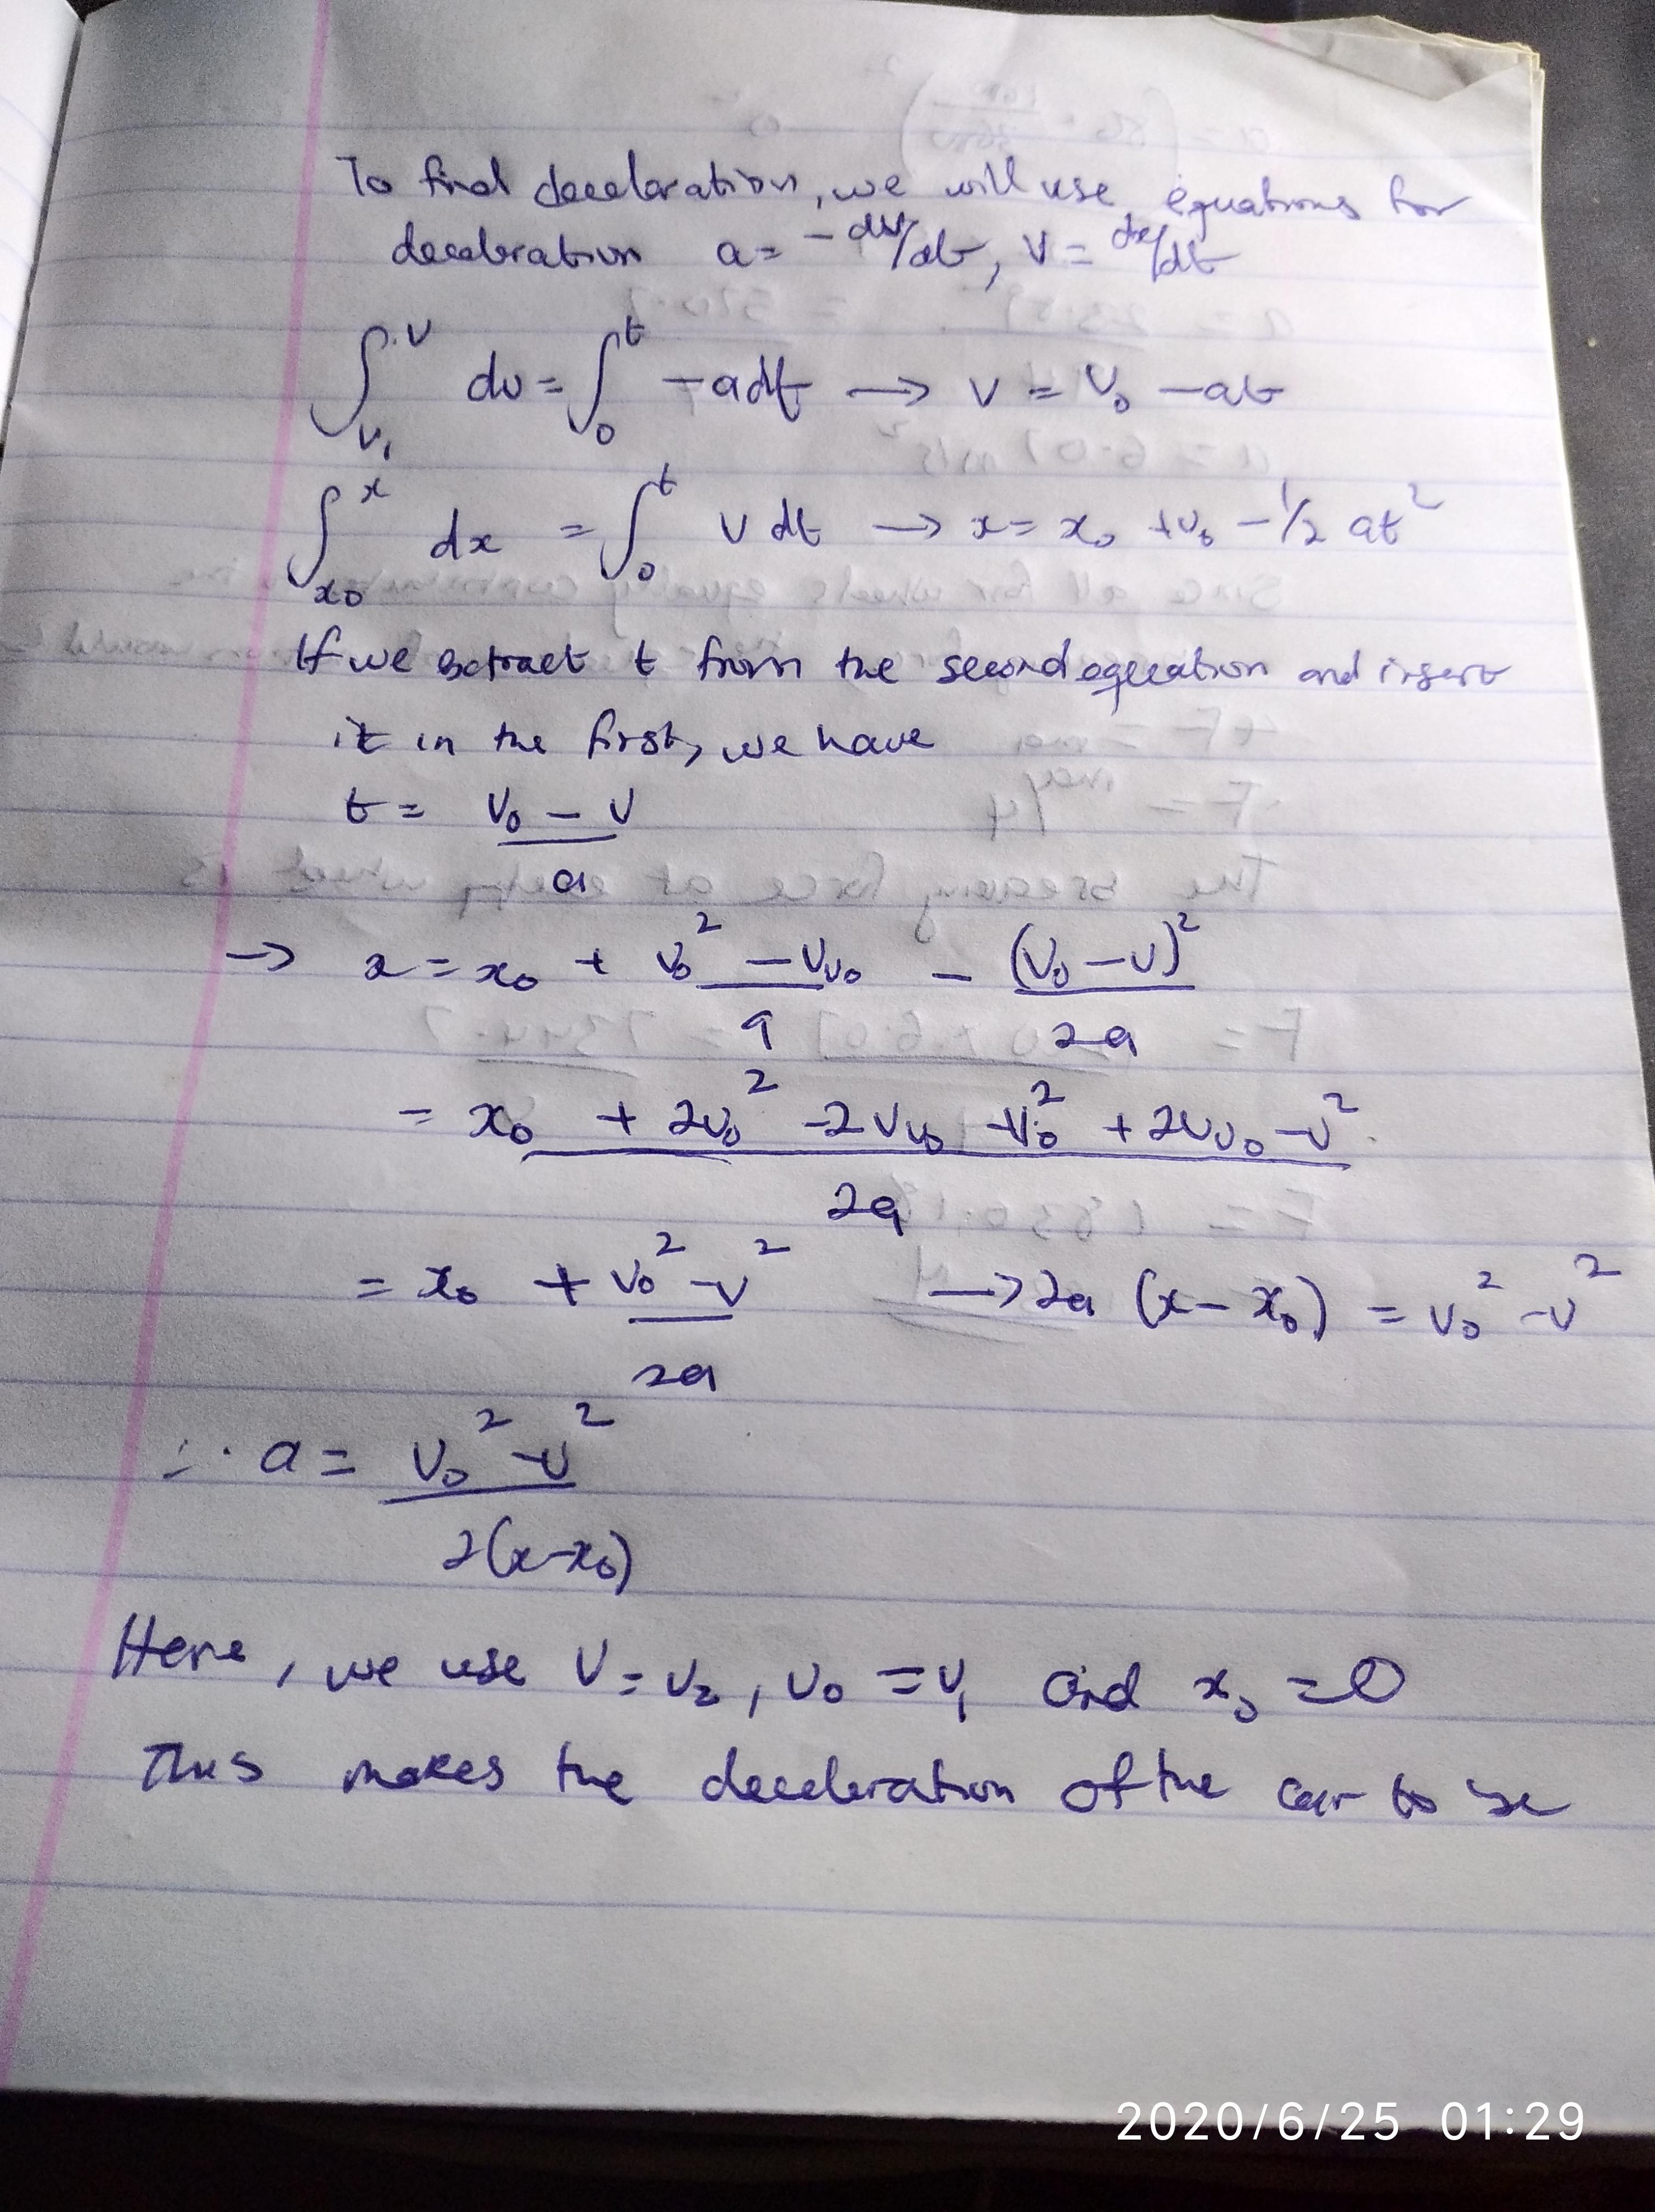 To find deceleration, we will use equations for
deceleration a = -dv/dt, v = dx/dt
∫_{v₁}^{v} dv = ∫_0^t -adt → v = v₀ - at
∫_{x0}^{x} dx = ∫_0^t v dt → x = x₀ + v₀ - 1/2 at²
If we extract t from the second equation and insert
it in the first, we have
t = (v₀ - v)/a
→ x = x₀ + (v₀² - vv₀)/a - (v₀ - v)²/2a
= x₀ + (2v₀² - 2vv₀ - v₀² + 2vv₀ - v²)/2a
= x₀ + (v₀² - v²)/2a → 2a (x - x₀) = v₀² - v²
∴ a = (v₀² - v²)/2(x-x₀)
Here, we use v = v₂, v₀ = v₁ and x₀ = 0
This makes the deceleration of the car to be
2020/6/25 01:29